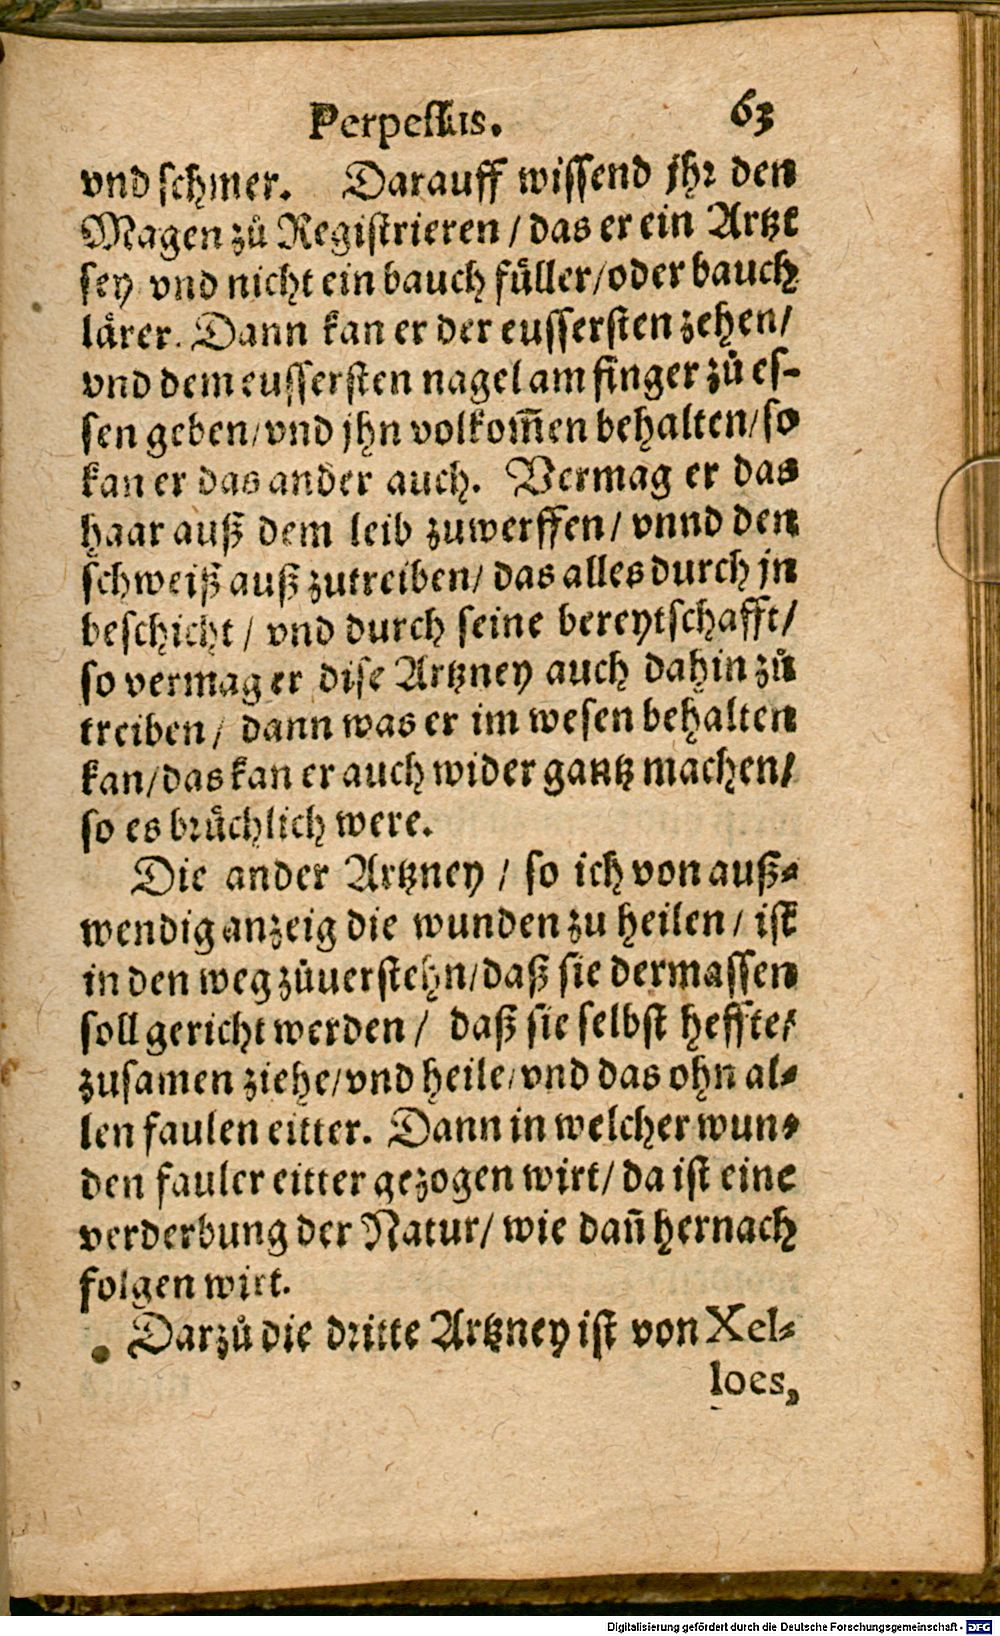 Perpessus. 63
vnd schmer. Darauff wissend jhr den
Magen zů Registrieren / das er ein Artzt
sey vnd nicht ein bauch füller/oder bauch
lärer. Dann kan er der eussersten zehen/
vnd dem eussersten nagel am finger zů es-
sen geben/vnd jhn volkom̃en behalten/so
kan er das ander auch. Vermag er das
haar auß dem leib zuwerffen/ vnnd den
schweiß auß zutreiben/ das alles durch jn
beschicht / vnd durch seine bereytschafft/
so vermag er dise Artzney auch dahin zů
treiben / dann was er im wesen behalten
kan/das kan er auch wider gantz machen/
so es brüchlich were.
Die ander Artzney / so ich von auß-
wendig anzeig die wunden zu heilen / ist
in den weg zůuerstehn/daß sie dermassen
soll gericht werden / daß sie selbst heffte/
zusamen ziehe/vnd heile/vnd das ohn al-
len faulen eitter. Dann in welcher wun-
den fauler eitter gezogen wirt/ da ist eine
verderbung der Natur/ wie dañ hernach
folgen wirt.
Darzů die dritte Artzney ist von Xel-
loes,
Digitalisierung gefördert durch die Deutsche Forschungsgemeinschaft - DFG